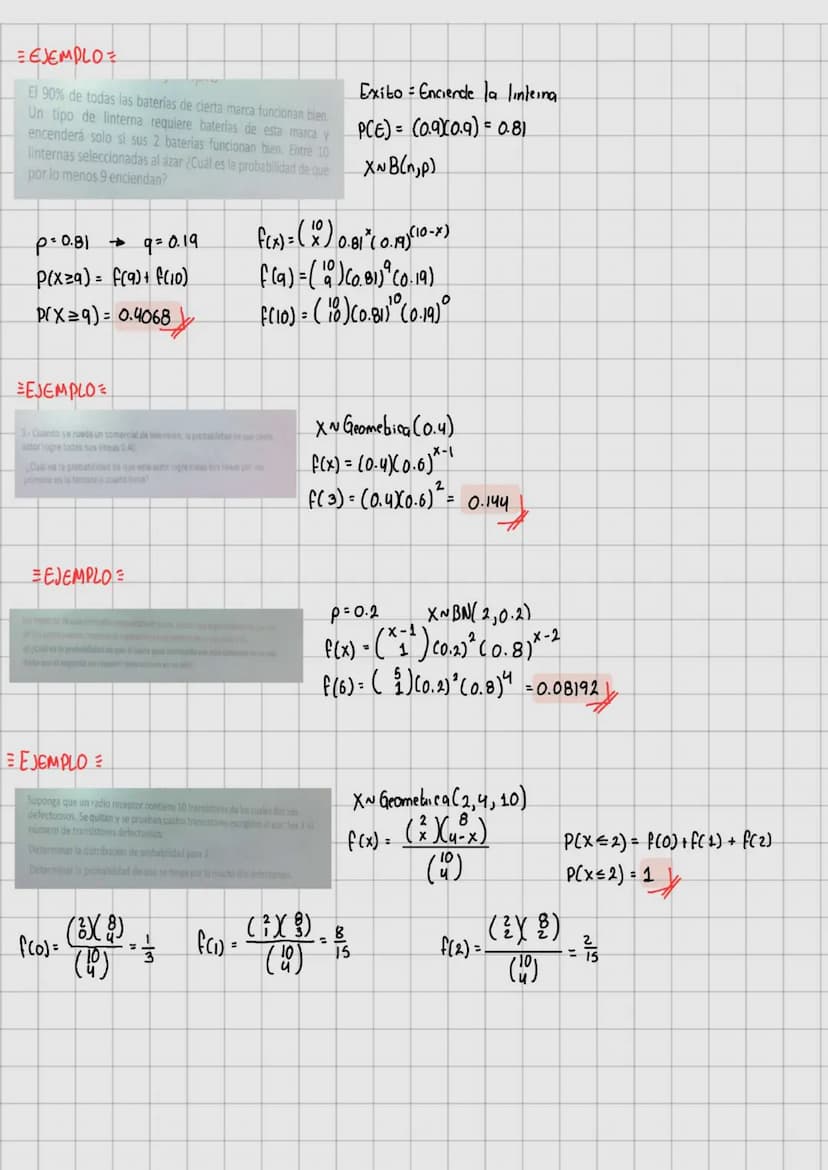 ≡EJEMPLO≡
El 90% de todas las baterías de cierta marca funcionan bien.
Un tipo de linterna requiere baterías de esta marca y
encenderá solo si sus 2 baterías funcionan bien. Entre 10
linternas seleccionadas al azar ¿Cuál es la probabilidad de que
por lo menos 9 enciendan?
Exito = Enciende la linterna
P(E) = (0.9)(0.9) = 0.81
X~B(n,p)
p=0.81 → q=0.19
P(X≥9) = f(9)+ f(10)
P(X≥9) = 0.4068
f(x)=(10 x) 0.81^x (0.19)^(10-x)
f(9)=(10 9)(0.81)^9 (0.19)
f(10) = (10 10)(0.81)^10 (0.19)^0
≡EJEMPLO≡
X~Geometrica(0.4)
f(x) = (0.4)(0.6)^x-1
f(3) = (0.4)(0.6)^2 = 0.144
≡EJEMPLO≡
p=0.2 X~BN(2,0.2)
f(x) = (x-1 1)(0.2)^2 (0.8)^x-2
f(6) = (5 1)(0.2)^2 (0.8)^4 = 0.08192
≡EJEMPLO≡
Suponga que un radio receptor contiene 10 transistores de los cuales dos son
defectuosos. Se quitan y se prueban cuatro transistores
número de transistores defectuosos.
Determinar la distribución de probabilidad para
Determinar la probabilidad de que se tenga por lo mucho dos defectuosos.
X~Geometrica(2,4,10)
f(x) = (2 x)(8 4-x) / (10 4)
P(X≤2) = f(0)+f(1)+ f(2)
P(X≤2) = 1
f(0)= (2 0)(8 4) / (10 4) = 1/3 f(1) = (2 1)(8 3) / (10 4) = 8/15 f(2) = (2 2)(8 2) / (10 4) = 2/15